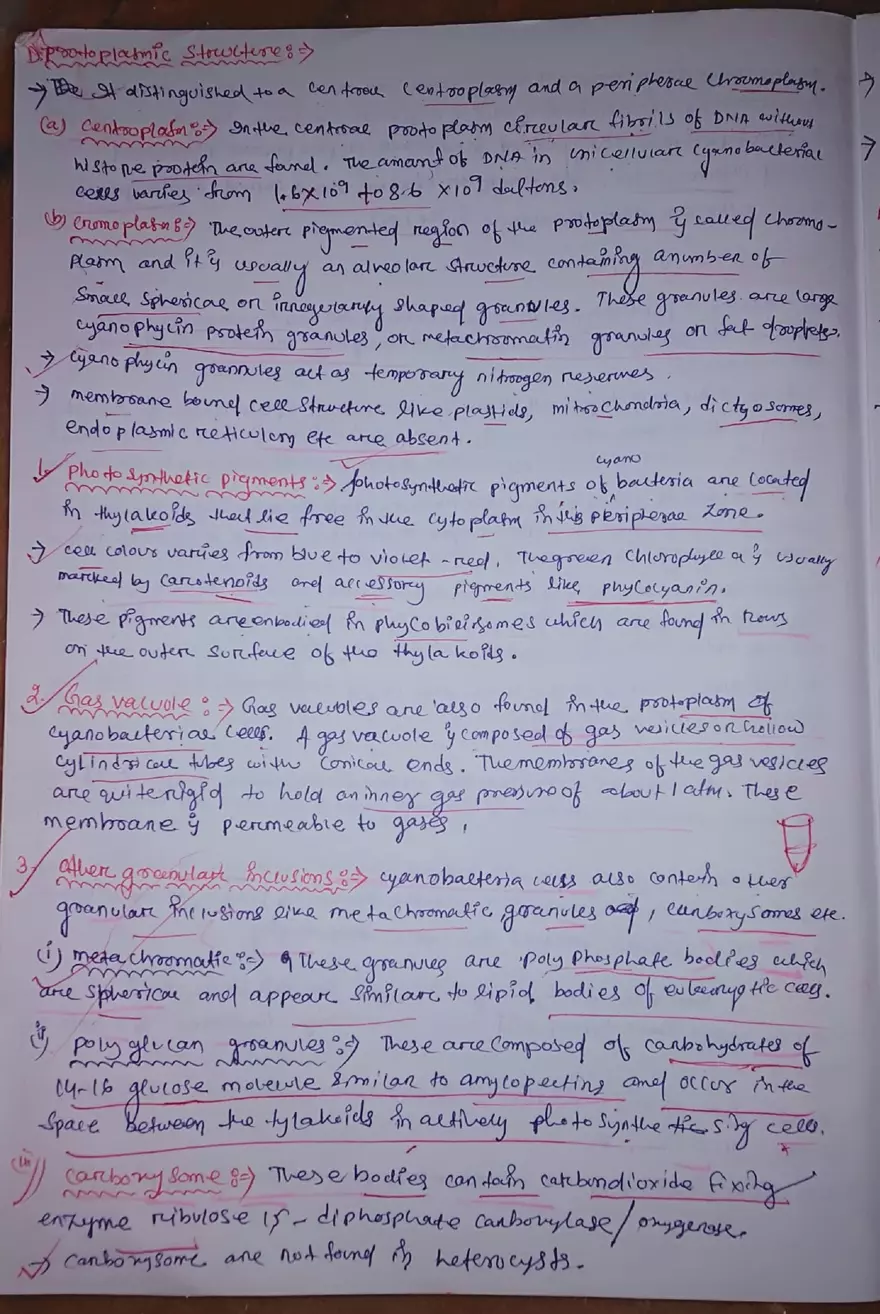 Protoplasmic Structure :⇒
→ It distinguished to a central centroplasm and a peripheral chromoplasm.
(a) Centroplasm :⇒ In the central protoplasm circular fibrils of DNA without
histone protein are found. The amant of DNA in unicellular cyanobacterial
cells varies from 1.6×10⁹ to 8.6 ×10⁹ daltons.
(b) Cromoplasm :⇒ The outer pigmented region of the protoplasm is called chromo-
plasm and it is usually an alveolar structure containing a number of
small spherical or irregularly shaped granules. These granules are large
cyanophycin protein granules, or metachromatin granules or fat droplets.
→ Cyanophycin grannules act as temporary nitrogen reserves.
→ membrane bound cell structure like plastids, mitochondria, dictyosomes,
endoplasmic reticulum etc are absent.
1. Photosynthetic pigments :⇒ photosynthetic pigments of cyano bacteria are located
in thylakoids that lie free in the cytoplasm in this peripheral zone.
→ cell colour varies from blue to violet-red. The green chlorophyll a is usually
marked by carotenoids and accessory pigments like phycocyanin.
→ These pigments are enbodied in phycobilisomes which are found in rows
on the outer surface of the thylakoids.
2. Gas vacuole :⇒ Gas vacuoles are also found in the protoplasm of
cyanobacterial cells. A gas vacuole is composed of gas vesicles or hollow
cylindrical tubes with conical ends. The membranes of the gas vesicles
are quite rigid to hold an inner gas pressure of about 1 atm. These
membrane is permeable to gases.
3. Other granular inclusions :⇒ cyanobacteria cells also contain other
granular inclusions like metachromatic granules, carboxysomes etc.
(i) metachromatic :⇒ These granules are poly phosphate bodies which
are spherical and appear similar to lipid bodies of eukaryotic cells.
(ii) polyglucan granules :⇒ These are composed of carbohydrates of
14-16 glucose molecule similar to amylopecting and occur in the
space between the tylakoids in actively photosynthesising cells.
(iii) Carboxysome :⇒ These bodies contain carbondioxide fixing
enzyme ribulose 15-diphosphate carboxylase/oxygenase.
→ Carboxysome are not found in heterocysts.